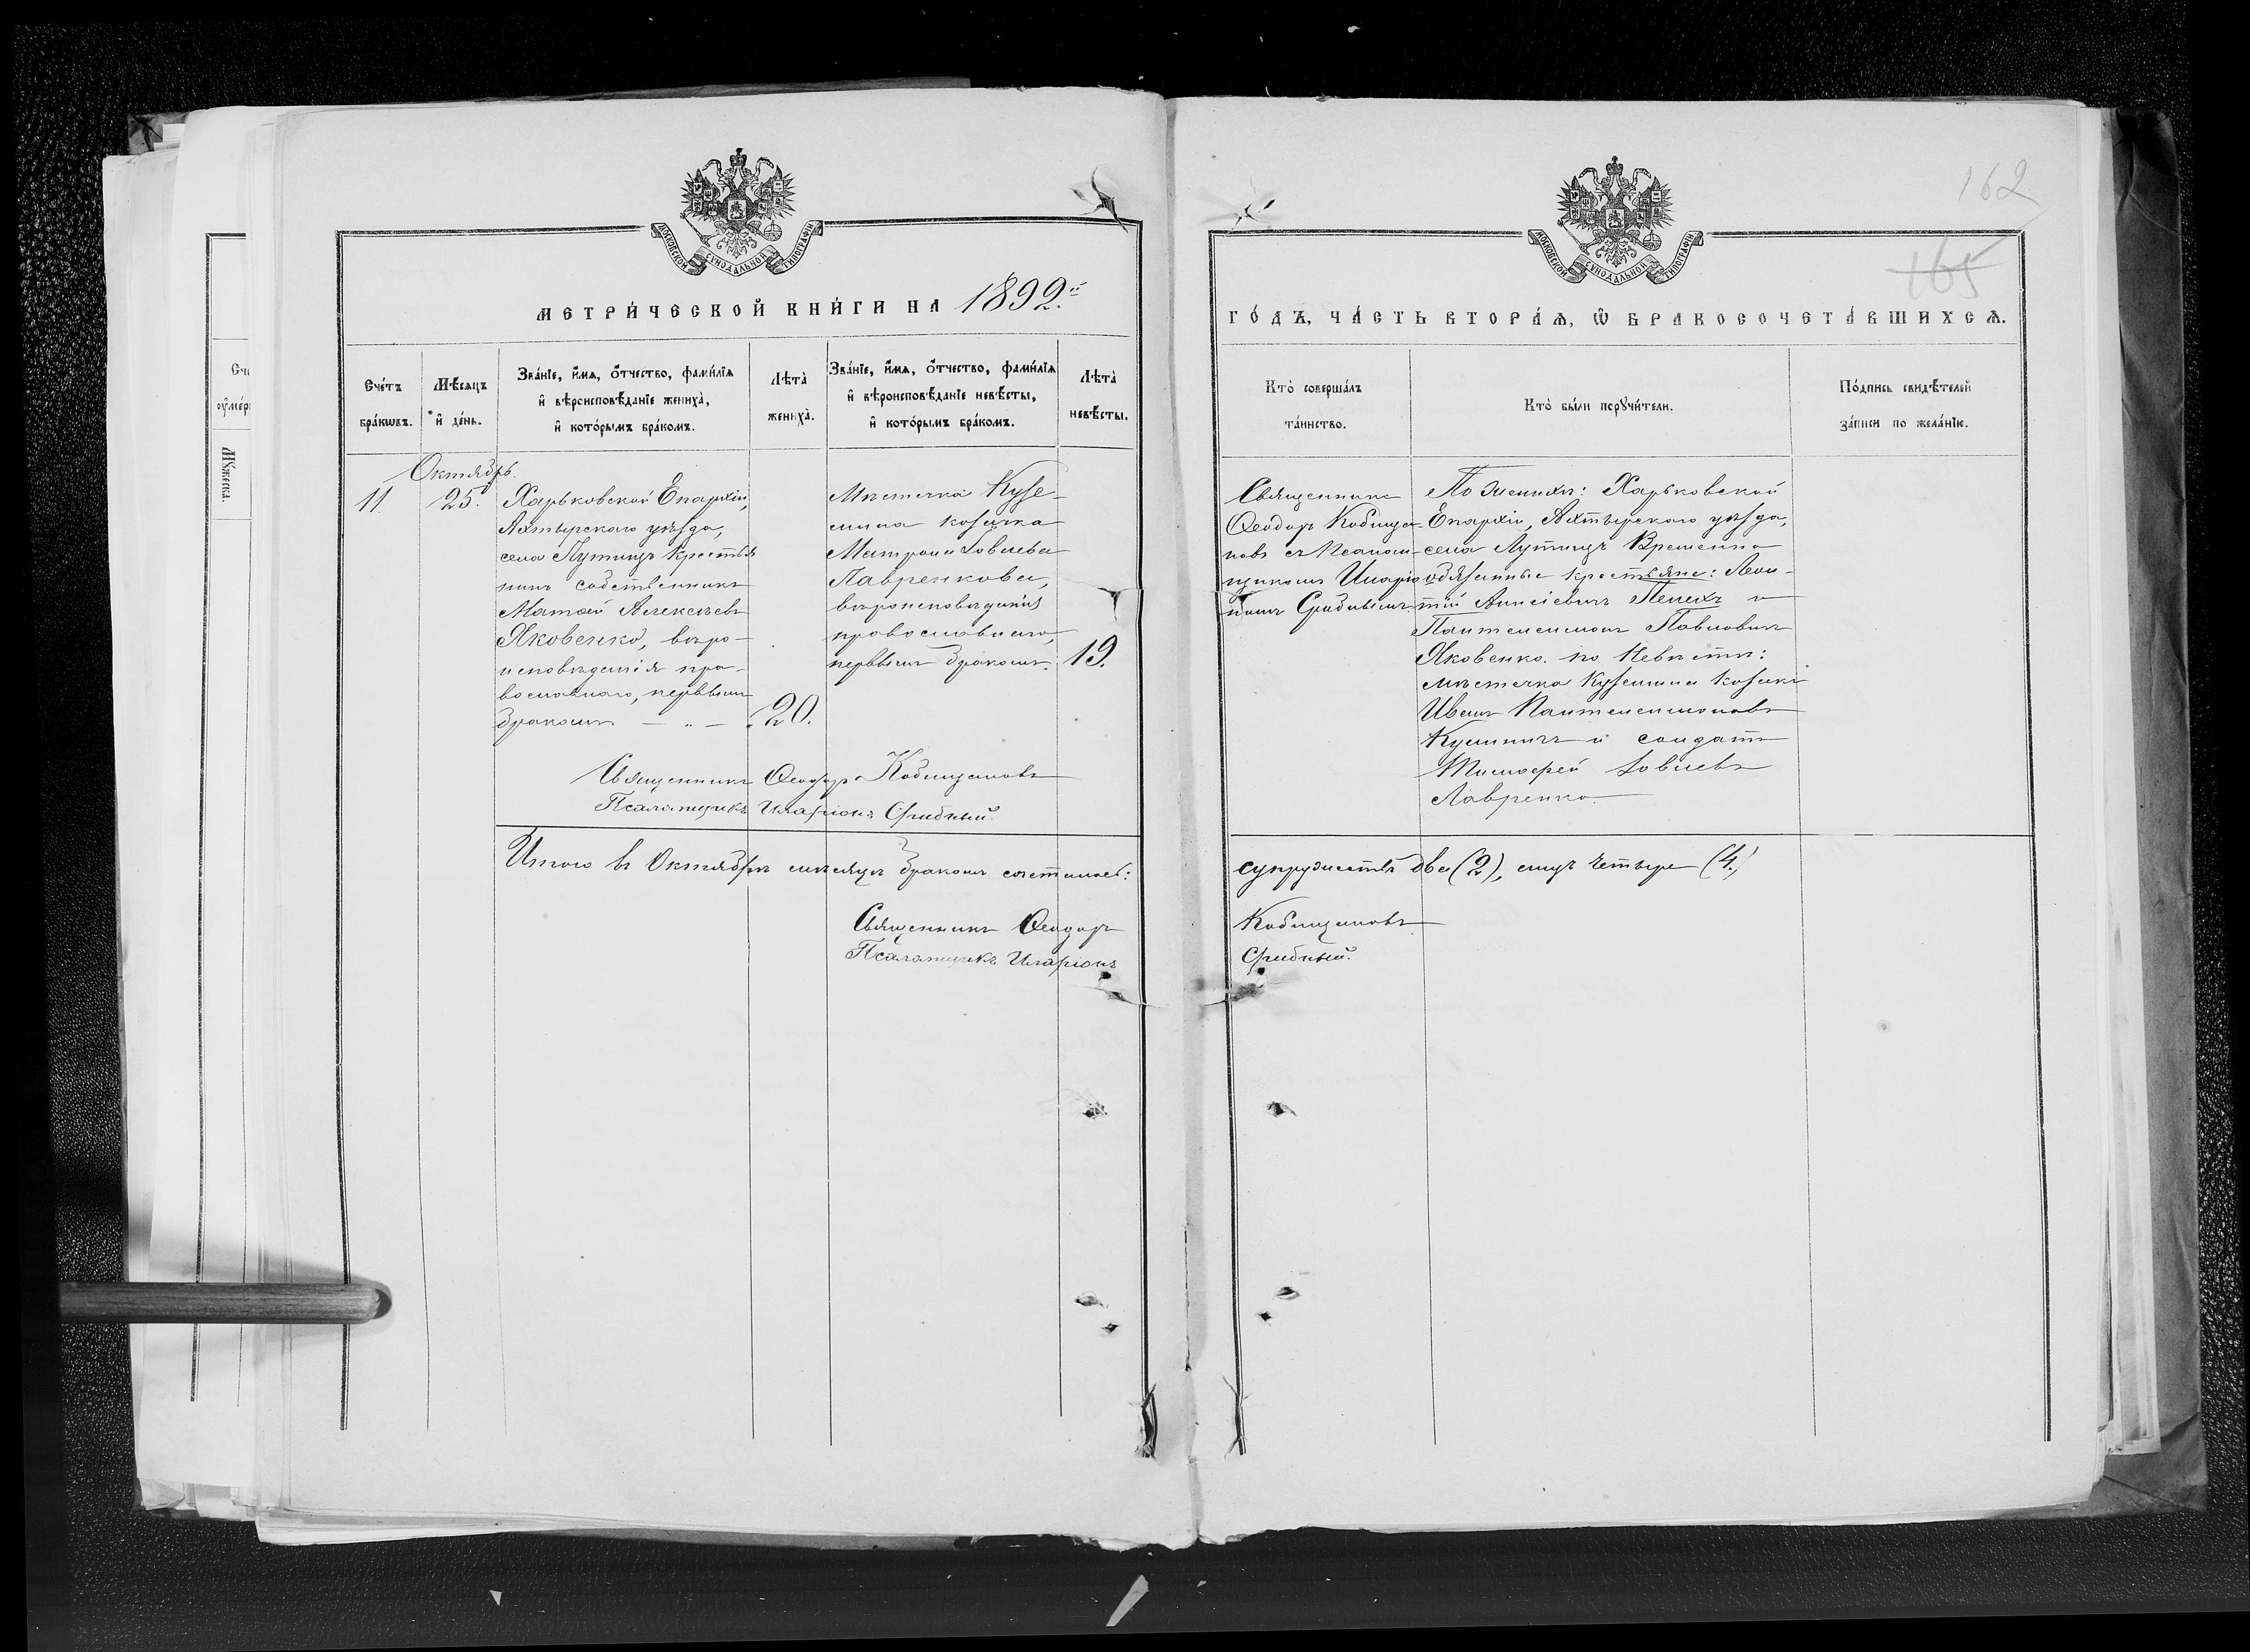 162
165
МОСКОВСКОЙ СУНОДАЛЬНОЙ ТИПОГРАФІИ
МОСКОВСКОЙ СУНОДАЛЬНОЙ ТИПОГРАФІИ
МЕТРИ́ЧЕСКОЙ КНИ́ГИ НА 1892.й
ГО́ДЪ, ЧА́СТЬ ВТОРА́Ѧ, Ѡ БРАКОСОЧЕТА́ВШИХСѦ.
Сче́тъ
бра́кѡвъ.
Мѣ́сяцъ
и҆ де́нь.
Зва́нїе, и҆́мѧ, ѻ҆́тчество, фами́лїѧ
и҆ вѣроисповѣ́данїе жениха̀,
и҆ кото́рымъ бра́комъ.
Лѣ́та̀
жениха̀.
Зва́нїе, и҆́мѧ, ѻ҆́тчество, фами́лїѧ
и҆ вѣроисповѣ́данїе невѣ́сты,
и҆ кото́рымъ бра́комъ.
Лѣ́та̀
невѣ́сты.
Кто̀ соверша́лъ
та́инство.
Кто̀ бы́ли порꙋчи́тели.
По́дпись свидѣ́телей
за́писи по жела́нїю.
Октябрь
11.
25.
Харьковской Епархіи,
Ахтырскаго уѣзда,
села Лутищъ крестья
нинъ собственникъ
Матѳей Алексѣевъ
Яковенко, вѣро-
исповѣданія пра-
вославнаго, первымъ
бракомъ — „ —
20.
Мѣстечка Кузе-
мина козачка
Матрона Іовлева
Лавренкова,
вѣроисповѣданія
православнаго,
первымъ бракомъ.
19.
Священникъ
Ѳеодоръ Кобища-
новъ съ Псалом-
щикомъ Иларіо
номъ Срибнымъ.
По Женихѣ: Харьковской
Епархіи, Ахтырскаго уѣзда,
села Лутищъ Временно
обязанные крестьяне: Леон-
тій Анисіевичъ и
Пантелеимонъ Павловичъ
Яковенко. по Невѣстѣ:
мѣстечка Куземина козакъ
Иванъ Пантелеимоновъ
и солдатъ
Тимофей Іовлевъ
Лавренко.
Священникъ Ѳеодоръ Кобищановъ
Псаломщикъ Иларіонъ Срибный.
Итого въ Октябрѣ мѣсяцѣ бракомъ сочеталось:
супружествъ два (2), лицъ четыре (4.)
Священникъ Ѳеодоръ Кобищановъ
Псаломщикъ Иларіонъ Срибный.